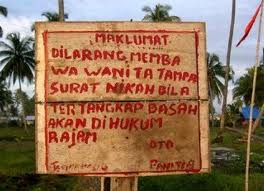 MAKLUMAT
DILARANG MEMBA
WA WANITA TAMPA
SURAT NIKAH BILA
TERTANGKAP BASAH
AKAN DI HUKUM
RAJAM
DTO
PANITIA